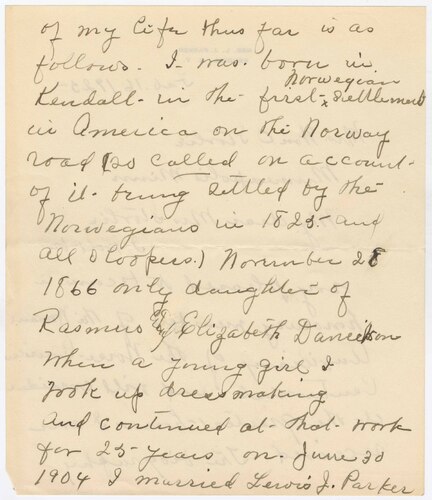 of my life thus far is as
follows. I was born in
Norwegian
Kendall in the first x settlement
in America on the Norway
road (so called on account
of it being settled by the
Norwegians in 1825 and
all Sloopers.) November 28
1866 only daughter of
Rasmus & Elizabeth Danielson
When a young girl I
took up dressmaking
and continued at that work
for 25 years on June 30
1904 I married Lewis J. Parker